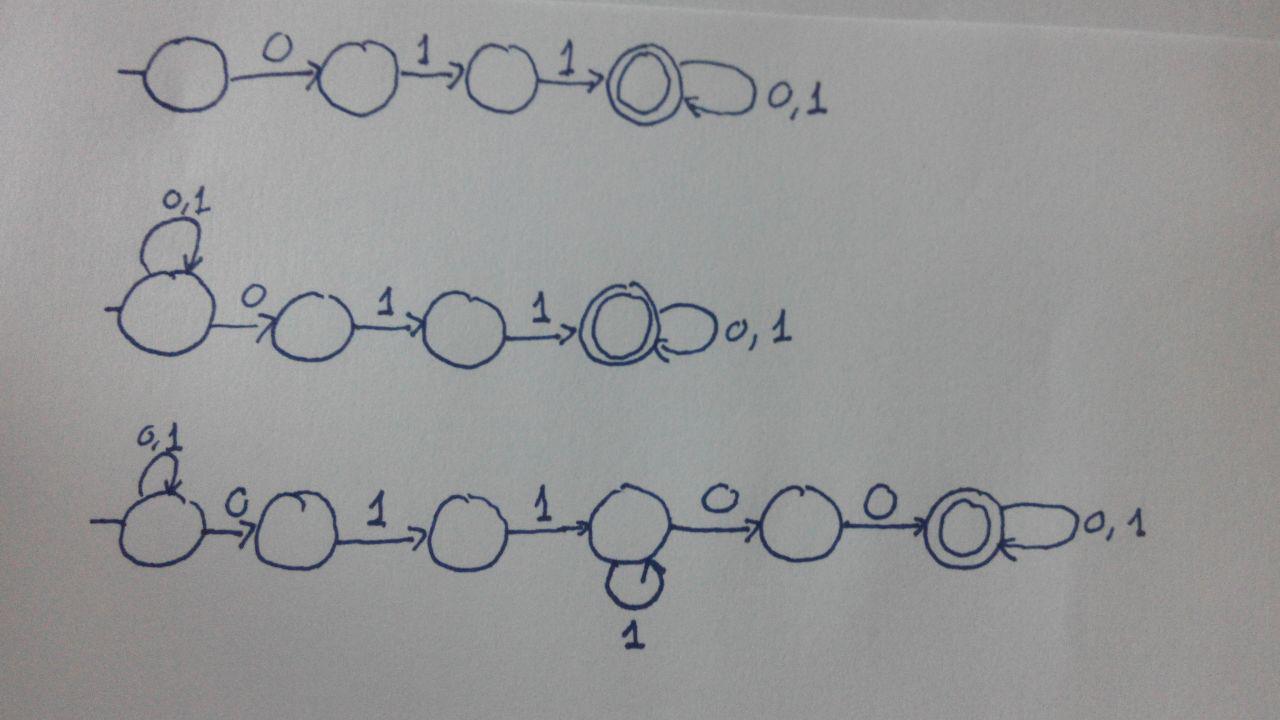 0 1 1 0,1
0,1
0 1 1 0,1
0,1
0 1 1 0 0 0,1
1